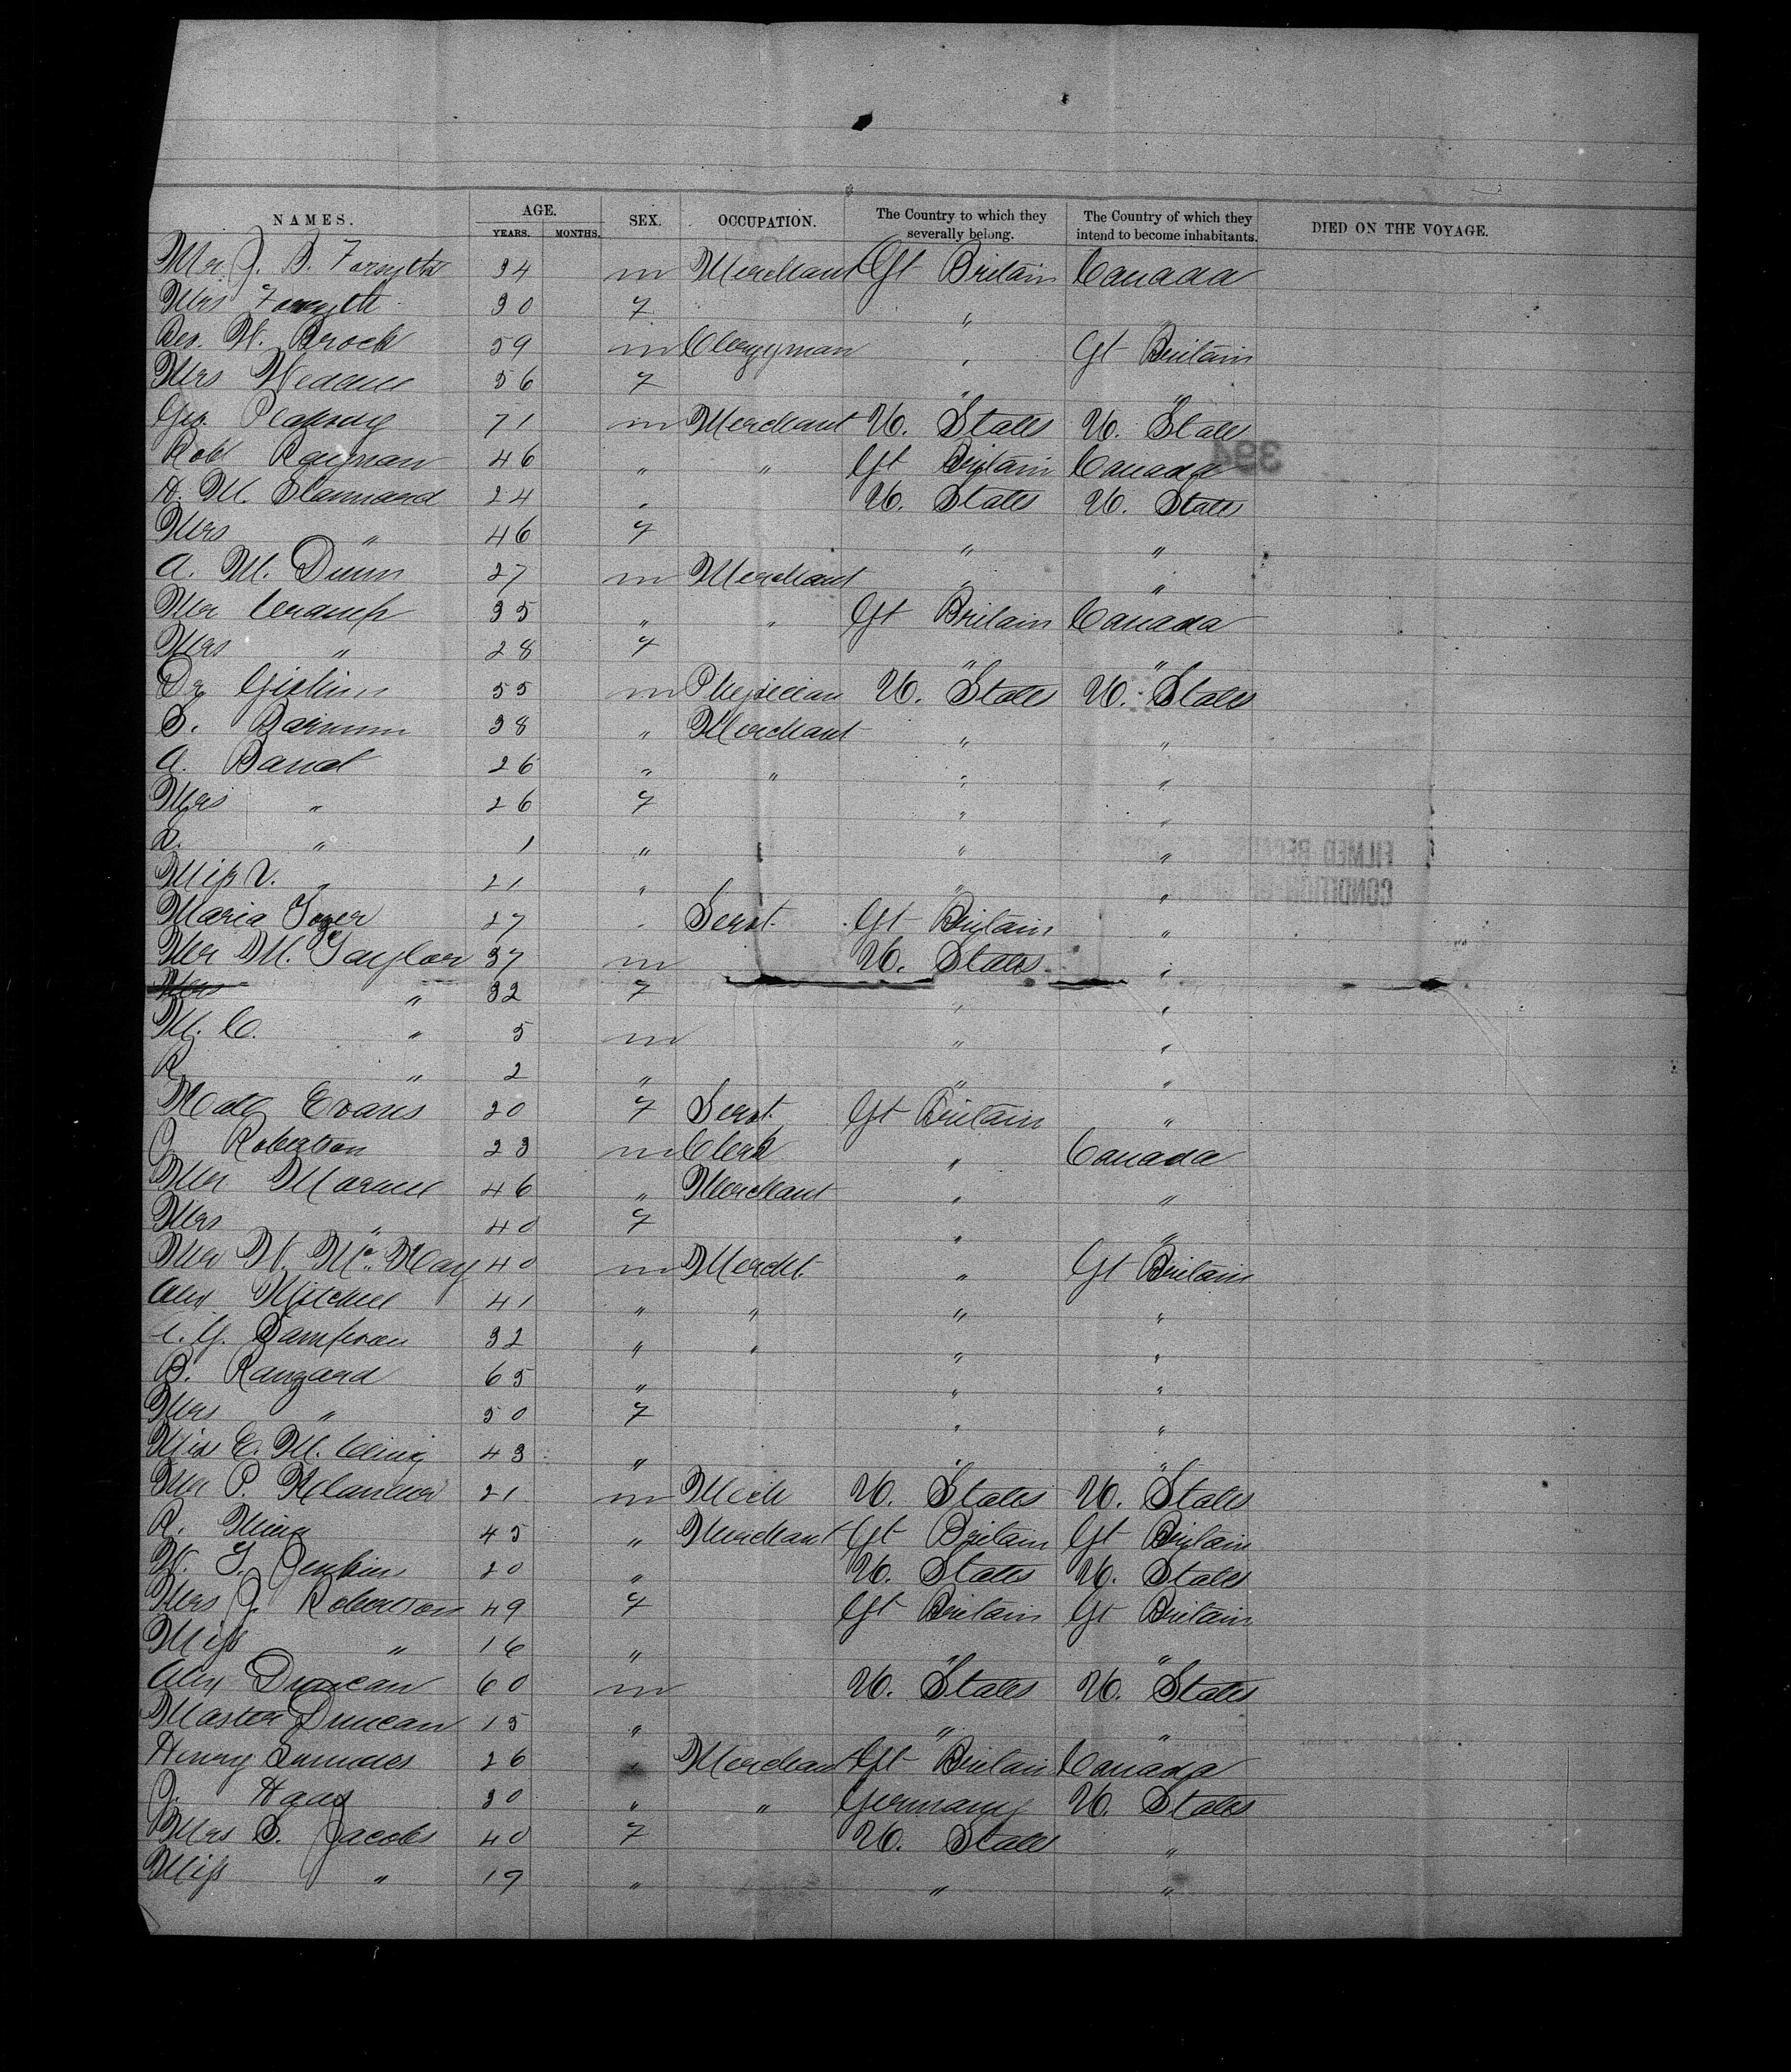 NAMES. AGE. YEARS. MONTHS. SEX. OCCUPATION. The Country to which they severally belong. The Country of which they intend to become inhabitants. DIED ON THE VOYAGE.
Mr J. B. Forsyth 34 m Merchant Gt Britain Canada
Mrs Forsyth 30 F " "
Rev. W. Brock 59 m Clergyman " Gt Britain
Mrs 56 F " "
Geo. Peabody 71 m Merchant U. States U. States
Robt 46 " " Gt Britain Canada
A. M. Stannard 24 " U. States U. States
Mrs " 46 F " "
A. M. Dunn 27 m Merchant " "
Mr Cramp 35 " " Gt Britain Canada
Mrs " 28 F " "
Dr 55 m Physician U. States U. States
S. Barnum 38 " Merchant " "
A. Band 26 " " " "
Mrs " 26 F " "
" 1 " " "
Miss V. " 21 " " "
Maria 27 " Servt. Gt Britain "
Mr M. Taylor 37 m U. States "
Mrs " 32 F " "
M. C. " 5 m " "
R. " 2 " " "
Kate Evans 20 F Servt. Gt Britain "
J Robertson 23 m Clerk " Canada
Mr 46 " Merchant " "
Mrs " 40 F " "
Mr W. McKay 40 m Mercht. " Gt Britain
Alex Mitchell 41 " " " "
32 " " " "
B. 65 " " "
Mrs " 50 F " "
Miss E. M. 43 " " "
Mr P. 21 m U. States U. States
R. King 45 " Merchant Gt Britain Gt Britain
W. T. Jenkins 20 " U. States U. States
Mrs J. Robertson 49 F Gt Britain Gt Britain
Miss " 16 " " "
Alex Duncan 60 m U. States U. States
Master Duncan 15 " " "
Henry 26 " Merchant Gt Britain Canada
J. Haas 30 " " Germany U. States
Mrs S. Jacobs 40 F U. States "
Miss " 19 " " "